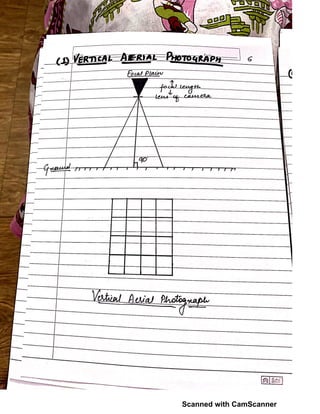 (1) VERTICAL AERIAL PHOTOGRAPH
6
Focal Plain
focal length
lens of camera
90
Ground
Vertical Aerial Photograph
Scanned with CamScanner